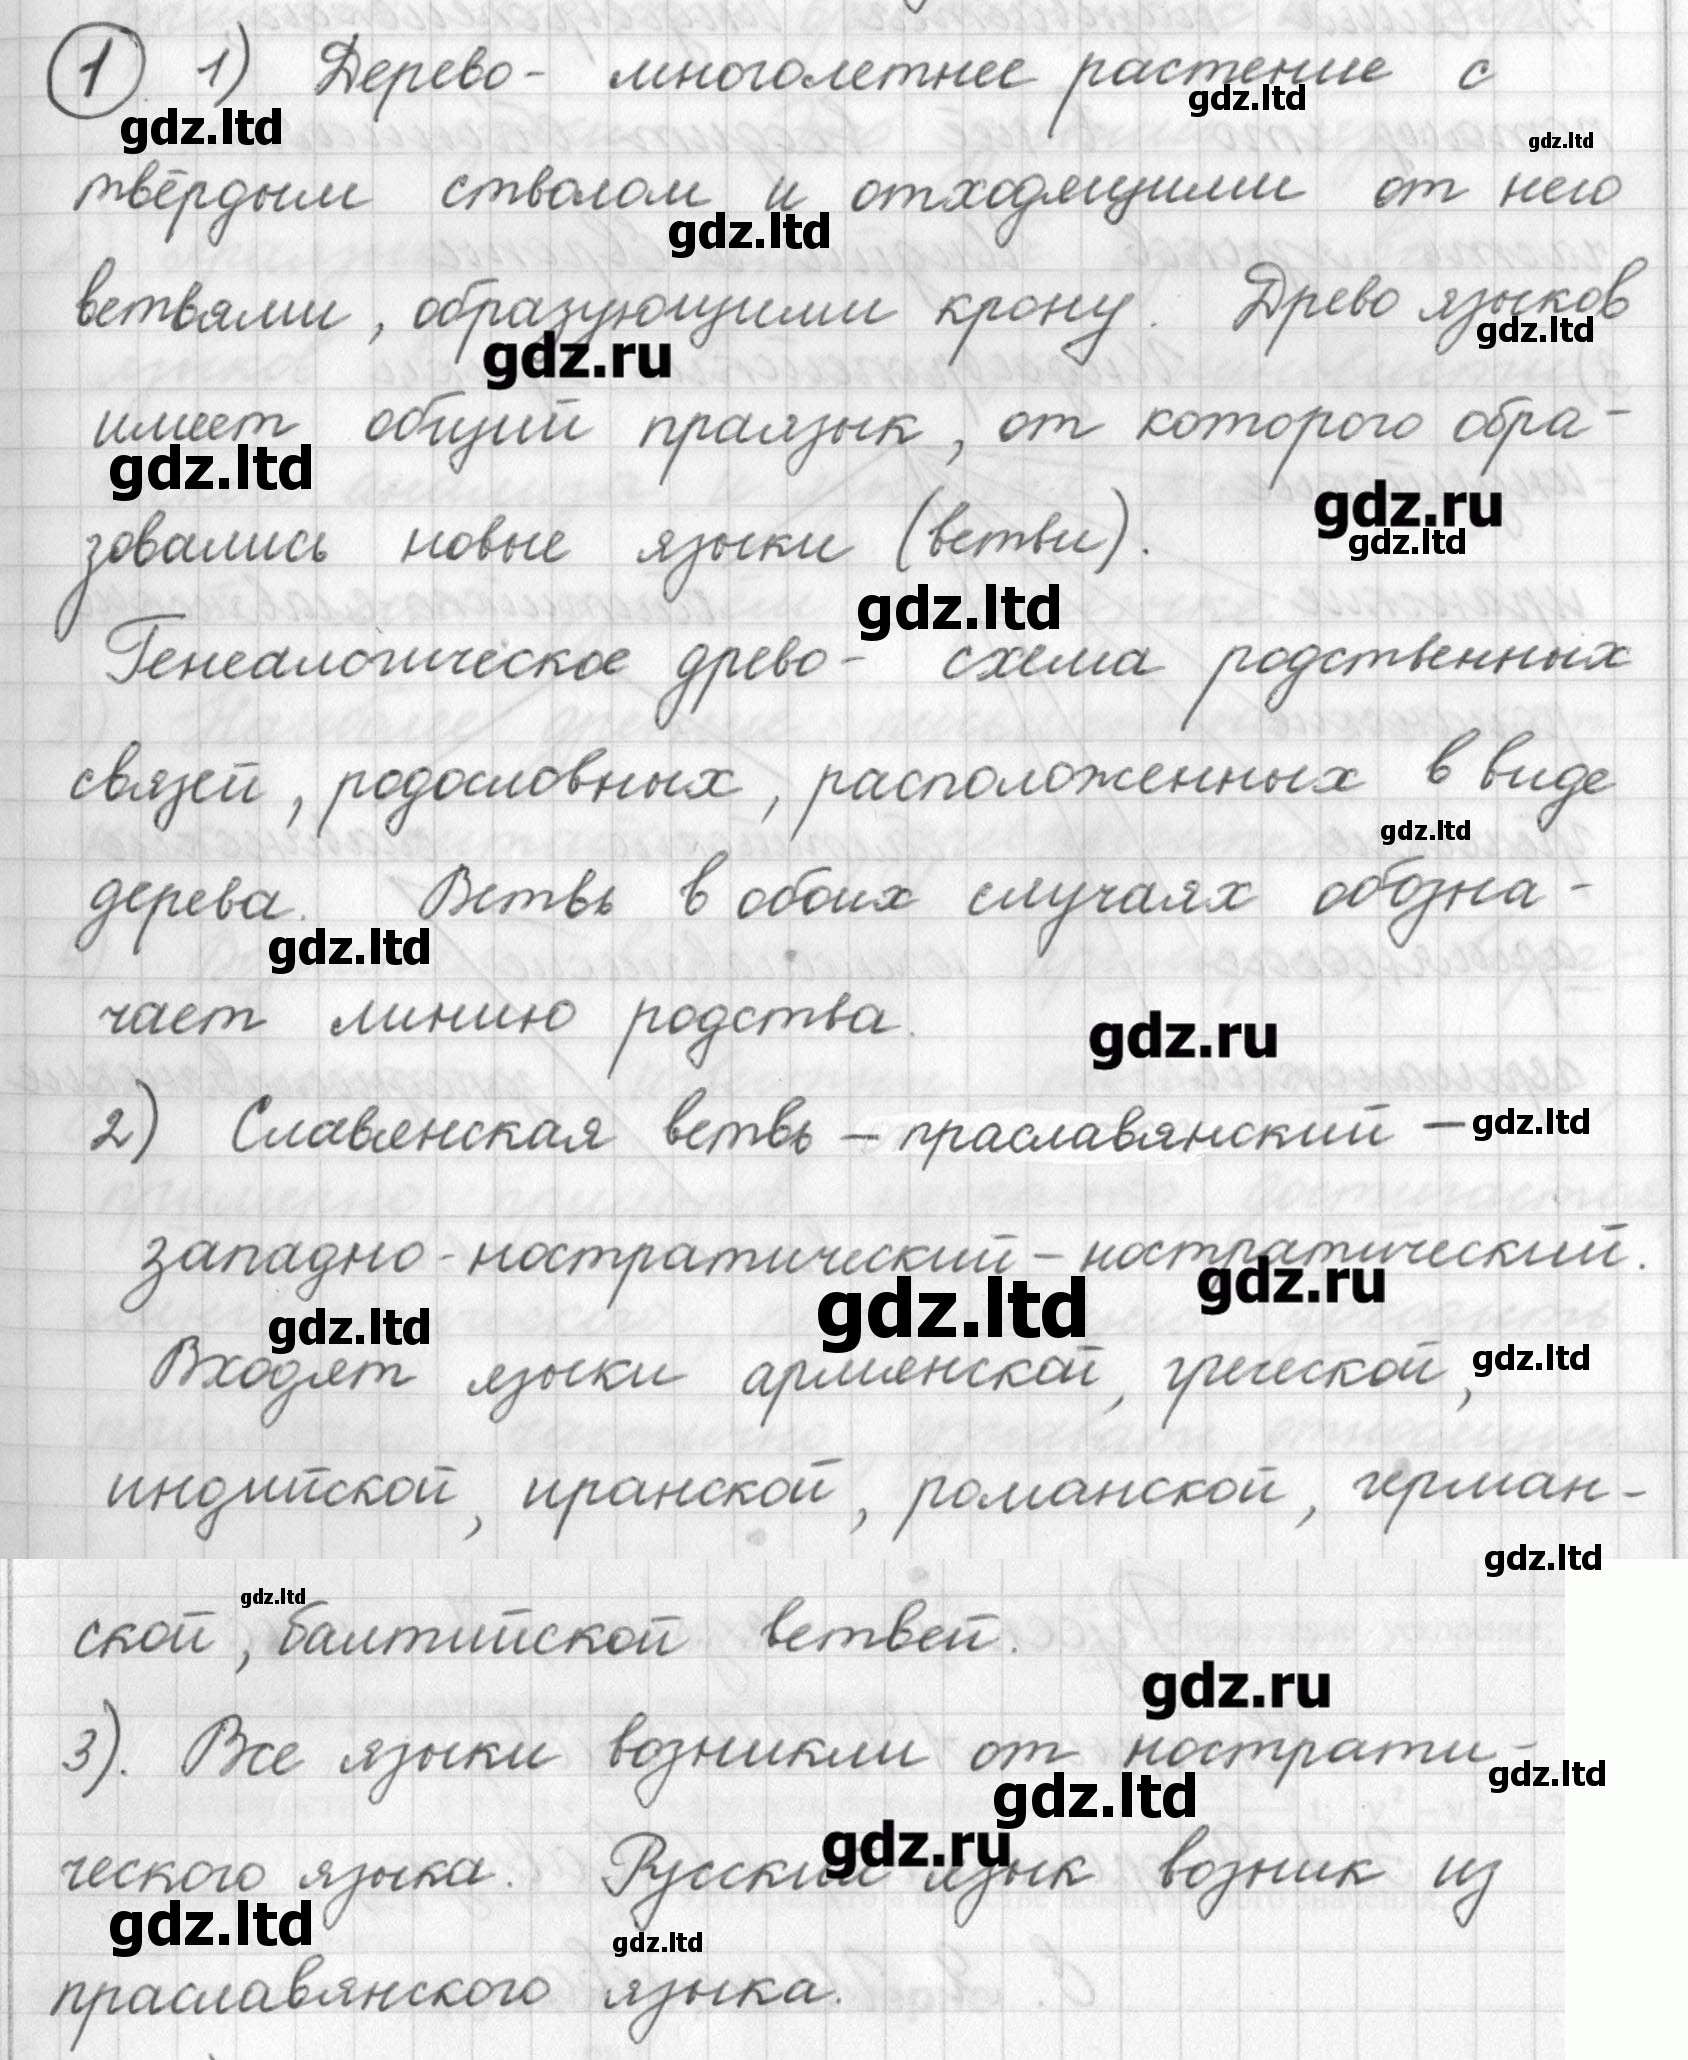 1 1) Дерево- многолетнее растение с
gdz.ltd gdz.ltd gdz.ltd
твёрдым стволом и отходящими от него
gdz.ltd
ветвями, образующими крону. Древо языков
gdz.ru gdz.ltd
имеет общий праязык, от которого обра-
gdz.ltd gdz.ru
зовались новые языки (ветви).
gdz.ltd
gdz.ltd
Генеалогическое древо- схема родственных
связей, родословных, расположенных в виде
gdz.ltd
дерева. Ветвь в обоих случаях обозна-
gdz.ltd
чает линию родства.
gdz.ru
2) Славянская ветвь – праславянский –
gdz.ltd
западно-ностратический – ностратический.
gdz.ltd gdz.ltd gdz.ru
Входят языки армянской, греческой,
gdz.ltd
индийской, иранской, романской, герман-
gdz.ltd
gdz.ltd
ской, балтийской ветвей.
gdz.ru
3). Все языки возникли от ностратi-
gdz.ltd gdz.ltd
gdz.ru
ческого языка. Русский язык возник из
gdz.ltd gdz.ltd
праславянского языка.